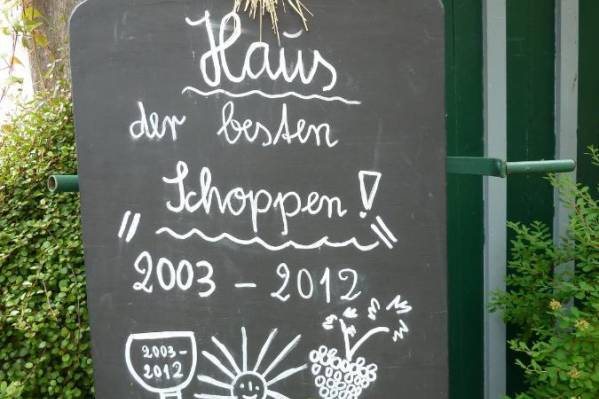 Haus
der besten
Schoppen!
" "
2003 - 2012
2003-
2012